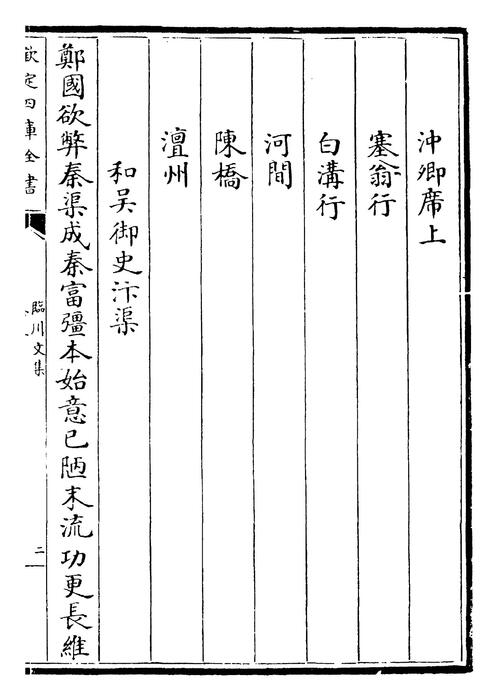 沖卿席上
塞翁行
白溝行
河間
陳橋
澶州
和吴御史汴渠
鄭國欲弊秦渠成秦富彊本始意已陋末流功更長維
欽定四庫全書
臨川文集
二